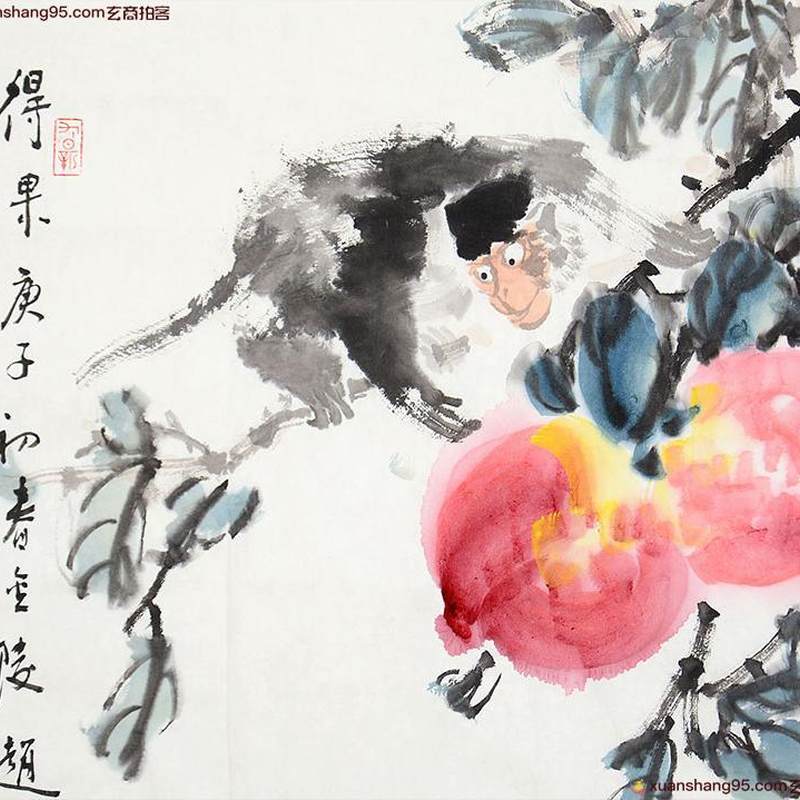 nshang95.com玄商拍客
得果庚子初春金陵趙
xuanshang95.com